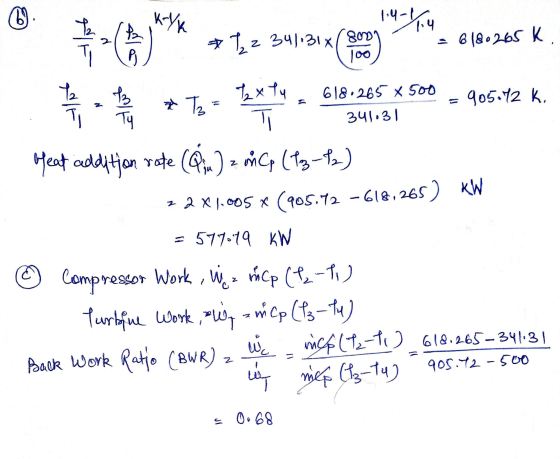 (b). T₂/T₁ = (P₂/P₁)^(K-1/K) ⇒ T₂ = 341.31 × (800/100)^(1.4-1/1.4) = 618.265 K.
T₂/T₁ = T₃/T₄ ⇒ T₃ = T₂×T₄/T₁ = 618.265 × 500/341.31 = 905.72 K.
Heat addition rate (Q̇in) = ṁCp (T₃-T₂)
= 2 × 1.005 × (905.72 - 618.265) KW
= 577.79 KW
(c) Compressor Work, Ẇc = ṁCp (T₂-T₁)
Turbine Work, Ẇ_T = ṁCp (T₃-T₄)
Back Work Ratio (BWR) = Ẇc/Ẇ_T = ṁCp (T₂-T₁)/ṁCp (T₃-T₄) = 618.265 - 341.31/905.72 - 500
= 0.68